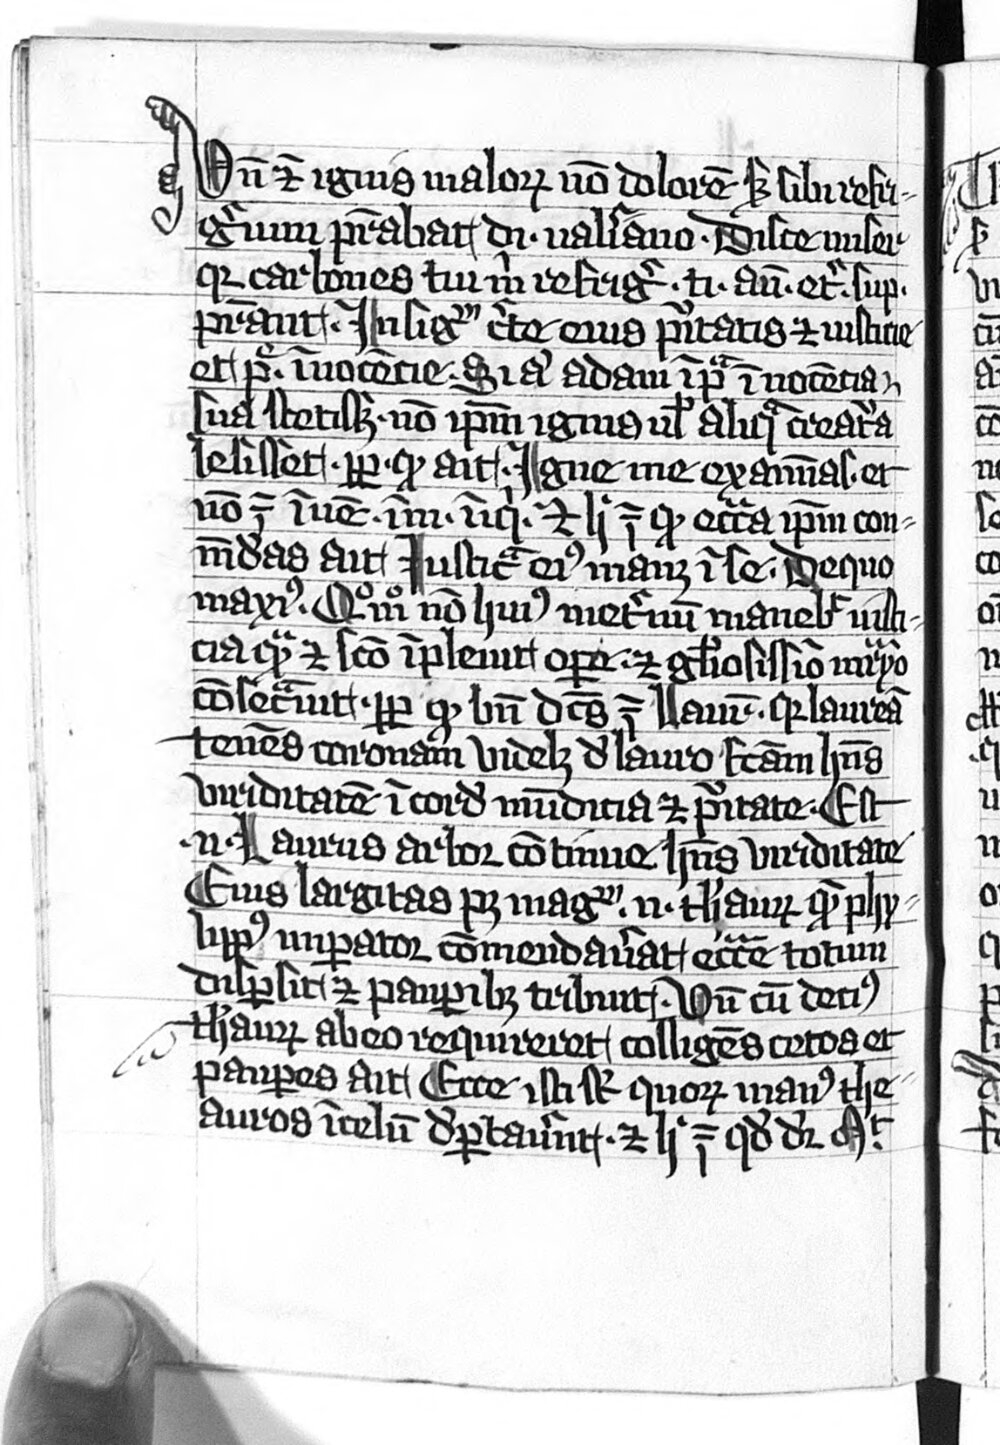 Vn̄ ⁊ ignis maloꝝ nō dolorē sꝫ sibi refri-
gerium p̄rabat di. ualiano. Disce miser
qꝛ carbones tui m̄ refrig̃. ti. aū. et̃. sup.
p̄rant. Insig̃ c̃te eius p̃itatis ⁊ iusticie
et p̃. īnocēcie. Si .n. adam īp̃a īnocēcia
sua stetisꝫ. nō ip̄m ignis ul̛ aliq̃ creat̃a
lesisset. ꝓp̄. qꝫ ait. Igne me examīas. et
nō ē īuē. ī m̄. īiq̇. ⁊ h̛ ē qꝫ ecc̃a ip̄m con-
m̄dās ait Iustic̃ eiꝰ manꝫ ī se. De quo
maxīꝰ. Qºmº nō huiꝰ met̃ nū maneb̃t iusti-
cia qꝫ ⁊ scō īpleuit oꝑe. ⁊ gl̃iosissiō mr̃yo
cōsec̃uit. ꝓp̄ qꝫ bn̄ dc̄s ē Laur̄. qꝛ laureā
tenēs coronam̄ videlꝫ d̄ lauro fc̄am hn̄s
viriditatē ī cord̄ mūdicia ⁊ p̃itate. Est
.n. Laurus arbor cōtinue hn̄s viriditatē
Eius largitas pꝫ mag̃. n. th̄auꝝ q̄ phy-
lipp̄ꝰ imꝑator cōmendau̾at ecc̃e totum
disꝑsit ⁊ pauꝑibꝫ tribuit. Vn̄ cū deciꝰ
th̄auꝝ ab eo requireret colligēs cecos et
pauꝑes ait Ecce isti st̄ quoꝝ manꝰ the-
auros ī celū d̄ꝑtaūnt. ⁊ h̛ ē qd̄ d̄ꝛ